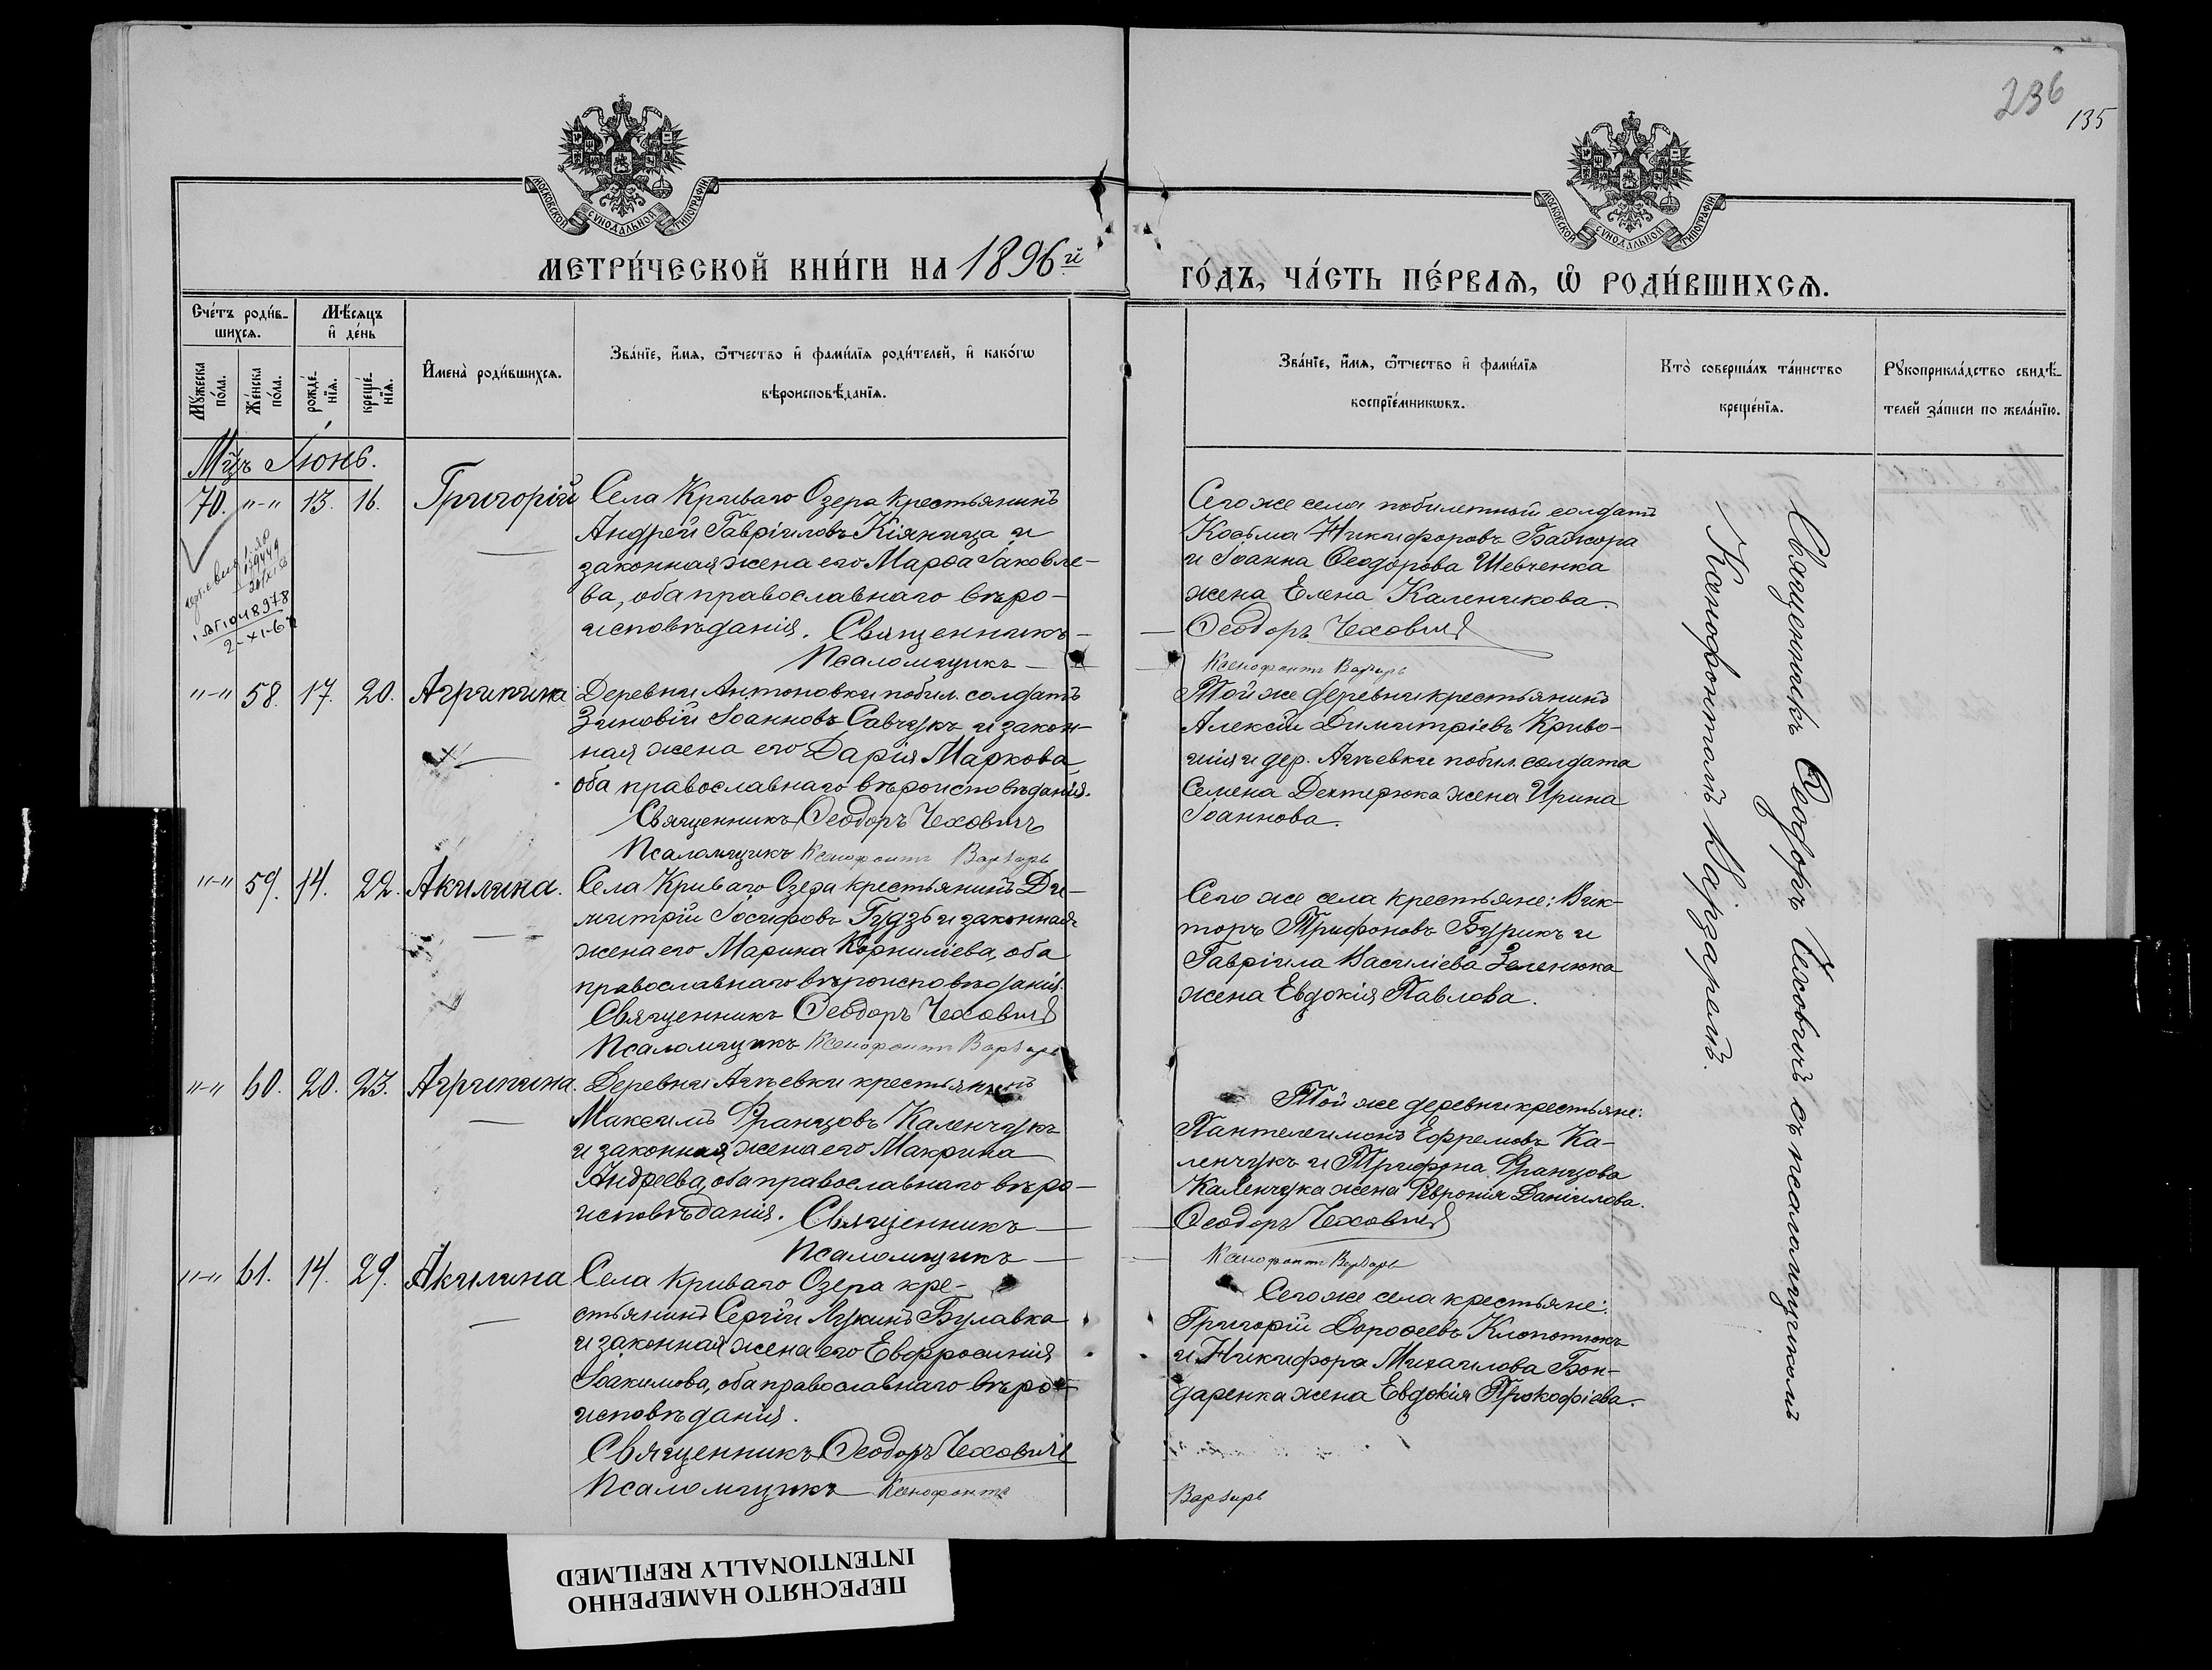 236
135
МОСКОВСКОЙ СѴНОДАЛЬНОЙ ТИПОГРАФІИ
МОСКОВСКОЙ СѴНОДАЛЬНОЙ ТИПОГРАФІИ
МЕТРИ́ЧЕСКОЙ КНИ́ГИ НА 1896й
ГО́ДЪ, ЧА́СТЬ ПЕ́РВАѦ, Ѽ РОДИ́ВШИХСѦ.
Сче́тъ роди́в-
шихсѧ.
Мѣ́сѧцъ
и҆ де́нь
Мꙋ́жеска
по́ла.
Же́нска
по́ла.
рожде́-
нїѧ.
креще́-
нїѧ.
И҆мена̀ роди́вшихсѧ.
Зва́нїе, и҆́мѧ, ѻ҆́тчество и҆ фами́лїѧ роди́телей, и҆ како́гѡ
вѣроисповѣ́данїѧ.
Зва́нїе, и҆́мѧ, ѻ҆́тчество и҆ фами́лїѧ
воспрїе́мникѡвъ.
Кто̀ соверша́лъ та́инство
креще́нїѧ.
Рꙋкоприкла́дство свидѣ́-
телей за́писи по жела́нїю.
Мцъ Іюнь.
70. "-" 13. 16. Григорій
Села Криваго Озера крестьянинъ
Андрей Гавріиловъ Кіяница и
законная жена его Марѳа Іаковле-
ва, оба православнаго вѣро-
исповѣданія. Священникъ
Псаломщикъ
Сего же села побилетный солдатъ
Козьма Никифоровъ Байжора
и Іоанна Ѳеодорова Шевченка
жена Елена Каленикова.
Ѳеодоръ Чеховичъ
Ксенофонтъ Варзарь
"-" 58. 17. 20. Агрипина
Деревни Антоновки побил. солдатъ
Зиновій Іоанновъ Савчукъ и закон-
ная жена его Дарія Маркова,
оба православнаго вѣроисповѣданія.
Священникъ Ѳеодоръ Чеховичъ
Псаломщикъ Ксенофонтъ Варзарь
Той же деревни крестьянинъ
Алексій Димитріевъ Криво-
шія и дер. Агѣевки побил. солдата
Семена Дехтерюка жена Ирина
Іоаннова.
"-" 59. 14. 22. Акилина.
Села Криваго Озера крестьянинъ Ди-
митрій Іосифовъ Гудзь и законная
жена его Марина Корниліева, оба
православнаго вѣроисповѣданія.
Священникъ Ѳеодоръ Чеховичъ
Псаломщикъ Ксенофонтъ Варзарь
Сего же села крестьяне: Вик-
торъ Трифоновъ Бурикъ и
Гавріила Василіева Зеленюка
жена Евдокія Павлова.
"-" 60. 20. 23. Агрипина.
Деревни Агѣевки крестьянинъ
Максимъ Францовъ Каленчукъ
и законная жена его Макрина
Андреева, оба православнаго вѣро-
исповѣданія. Священникъ
Псаломщикъ
Той же деревни крестьяне:
Пантелеимонъ Ефремовъ Ка-
ленчукъ и Трифона Францова
Каленчука жена Ѳевронія Даніилова.
Ѳеодоръ Чеховичъ
Ксенофонтъ Варзарь
"-" 61. 14. 29. Акилина
Села Криваго Озера кре-
стьянинъ Сергій Лукинъ Булавка
и законная жена его Евфросинія
Іоакимова, оба православнаго вѣро-
исповѣданія.
Священникъ Ѳеодоръ Чеховичъ
Псаломщикъ Ксенофонтъ
Варзарь
Сего же села крестьяне:
Григорій Дороѳеевъ Клопотюкъ
и Никифора Михаилова Бон-
даренка жена Евдокія Прокофіева.
Священникъ Ѳеодоръ Чеховичъ съ псаломщикомъ
Ксенофонтомъ Варзаремъ.
ПЕРЕСНЯТО НАМЕРЕННО
INTENTIONALLY REFILMED